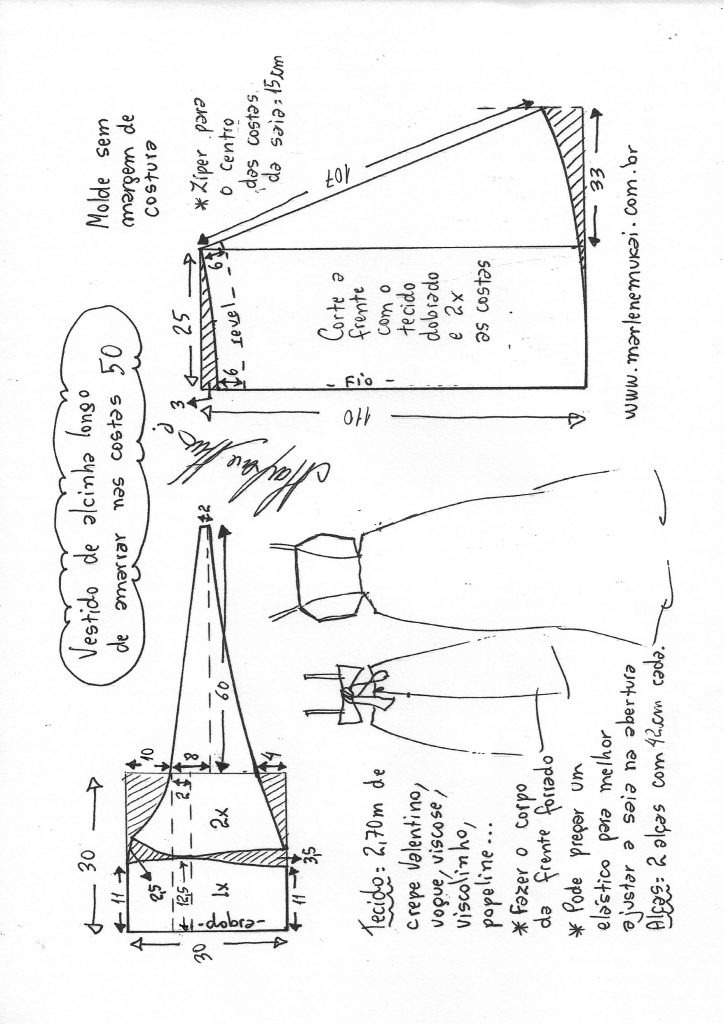 Vestido de alcinha longo
de amarrar nas costas 50
Molde sem
margem de
costura
* Zíper para
o centro
das costas
da saia: 15cm
30
10
8
4
2
60
2
11
2,5
12,5
2x
1x
-dobra-
3,5
11
30
25
3
6
6
- revel -
107
33
110
- Fio -
Corte a
frente
com o
tecido
dobrado
e 2x
as costas
www.marlenemukai.com.br
Tecido: 2,70m de
crepe Valentino,
voque, viscose,
viscolinho,
popeline...
* Fazer o corpo
da frente forrado
* Pode pregar um
elástico para melhor
ajustar a saia na abertura
Alças: 2 alças com 42cm cada.